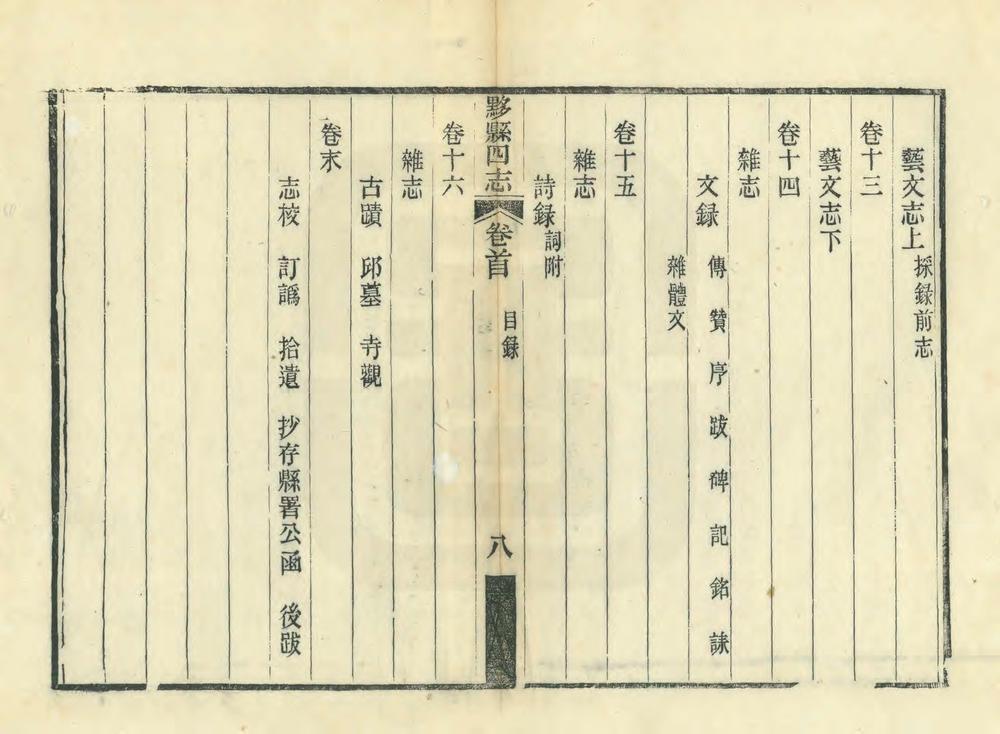 藝文志上 採錄前志
卷十三
藝文志下
卷十四
雜志
文録 傳 贊 序 跋 碑 記 銘 誄
雜體文
卷十五
雜志
詩録 詞附
黟縣四志 卷首 目錄 八
卷十六
雜志
古蹟 邱墓 寺觀
卷末
志校 訂譌 拾遺 抄存縣署公函 後跋